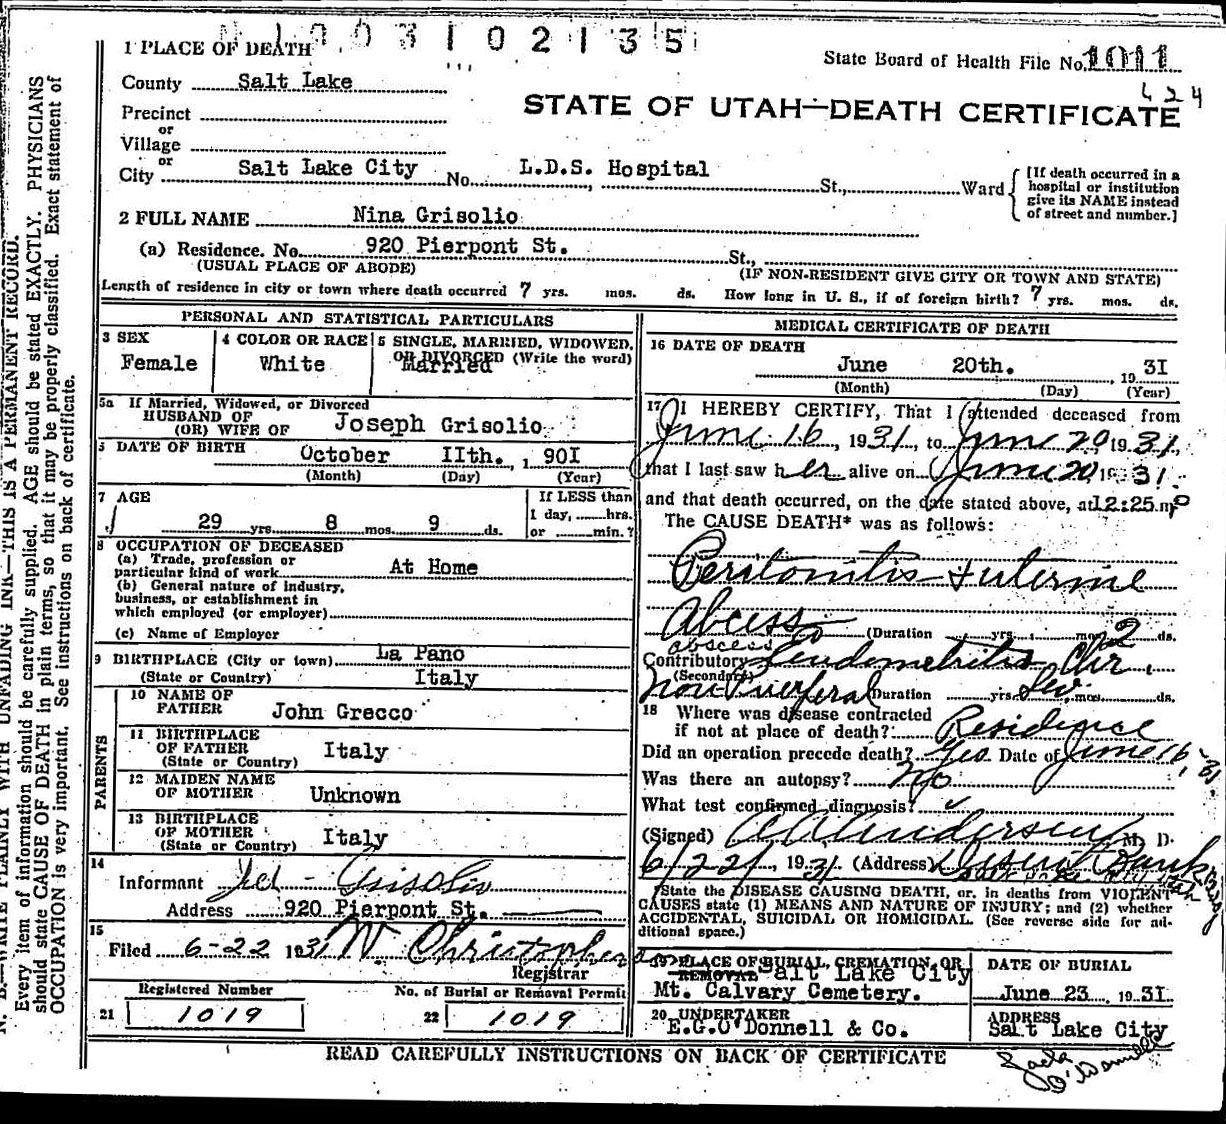 N 1003102135
1 PLACE OF DEATH
State Board of Health File No. 1011
424
County Salt Lake
STATE OF UTAH—DEATH CERTIFICATE
Precinct
or
Village
or
City Salt Lake City No. L.D.S. Hospital St., Ward
[If death occurred in a hospital or institution give its NAME instead of street and number.]
2 FULL NAME Nina Grisolio
(a) Residence. No. 920 Pierpont St. St.,
(USUAL PLACE OF ABODE) (IF NON-RESIDENT GIVE CITY OR TOWN AND STATE)
Length of residence in city or town where death occurred 7 yrs. mos. ds. How long in U. S., if of foreign birth? 7 yrs. mos. ds.
PERSONAL AND STATISTICAL PARTICULARS
3 SEX
Female
4 COLOR OR RACE
White
5 SINGLE, MARRIED, WIDOWED,
OR DIVORCED (Write the word)
Married
5a If Married, Widowed, or Divorced
HUSBAND OF
(OR) WIFE OF Joseph Grisolio
DATE OF BIRTH October IIth. , 1 90I
(Month) (Day) (Year)
7 AGE
29 yrs. 8 mos. 9 ds.
If LESS than
1 day, hrs.
or min.?
8 OCCUPATION OF DECEASED
(a) Trade, profession or
particular kind of work At Home
(b) General nature of industry,
business, or establishment in
which employed (or employer)
(c) Name of Employer
9 BIRTHPLACE (City or town) La Pano
(State or Country) Italy
PARENTS
10 NAME OF
FATHER John Grecco
11 BIRTHPLACE
OF FATHER Italy
(State or Country)
12 MAIDEN NAME
OF MOTHER Unknown
13 BIRTHPLACE
OF MOTHER Italy
(State or Country)
14
Informant Grisolio
Address 920 Pierpont St.
15
Filed 6-22 1931 N. Christopherson
Registrar
Registered Number
21 1019
No. of Burial or Removal Permit
22 1019
MEDICAL CERTIFICATE OF DEATH
16 DATE OF DEATH
June 20th. , 19 3I
(Month) (Day) (Year)
17 I HEREBY CERTIFY, That I attended deceased from
June 16, 1931, to June 20, 1931,
that I last saw her alive on June 20, 1931.
and that death occurred, on the date stated above, at 12:25 mp
The CAUSE DEATH* was as follows:
Peritonitis + uterine
Abcess (Duration yrs. mos. 12 ds.
abscess
Contributory Endometritis Chr.
(Secondary)
Non Puerferal Duration yrs. mos. ds.
18 Where was disease contracted
if not at place of death? Residence
Did an operation precede death? Yes Date of June 16, -31.
Was there an autopsy? No
What test confirmed diagnosis?
(Signed) Anderson M. D.
6/22, 1931 (Address) Deseret Bank
*State the DISEASE CAUSING DEATH, or, in deaths from VIOLENT
CAUSES state (1) MEANS AND NATURE OF INJURY; and (2) whether
ACCIDENTAL, SUICIDAL OR HOMICIDAL. (See reverse side for ad-
ditional space.)
19 PLACE OF BURIAL, CREMATION, OR
REMOVAL Salt Lake City
Mt. Calvary Cemetery.
DATE OF BURIAL
June 23, 1931
20 UNDERTAKER
E.G.O'Donnell & Co.
ADDRESS
Salt Lake City
READ CAREFULLY INSTRUCTIONS ON BACK OF CERTIFICATE
O'Donnell
N. B.—WRITE PLAINLY WITH UNFADING INK—THIS IS A PERMANENT RECORD.
Every item of information should be carefully supplied. AGE should be stated EXACTLY. PHYSICIANS
should state CAUSE OF DEATH in plain terms, so that it may be properly classified. Exact statement of
OCCUPATION is very important. See instructions on back of certificate.